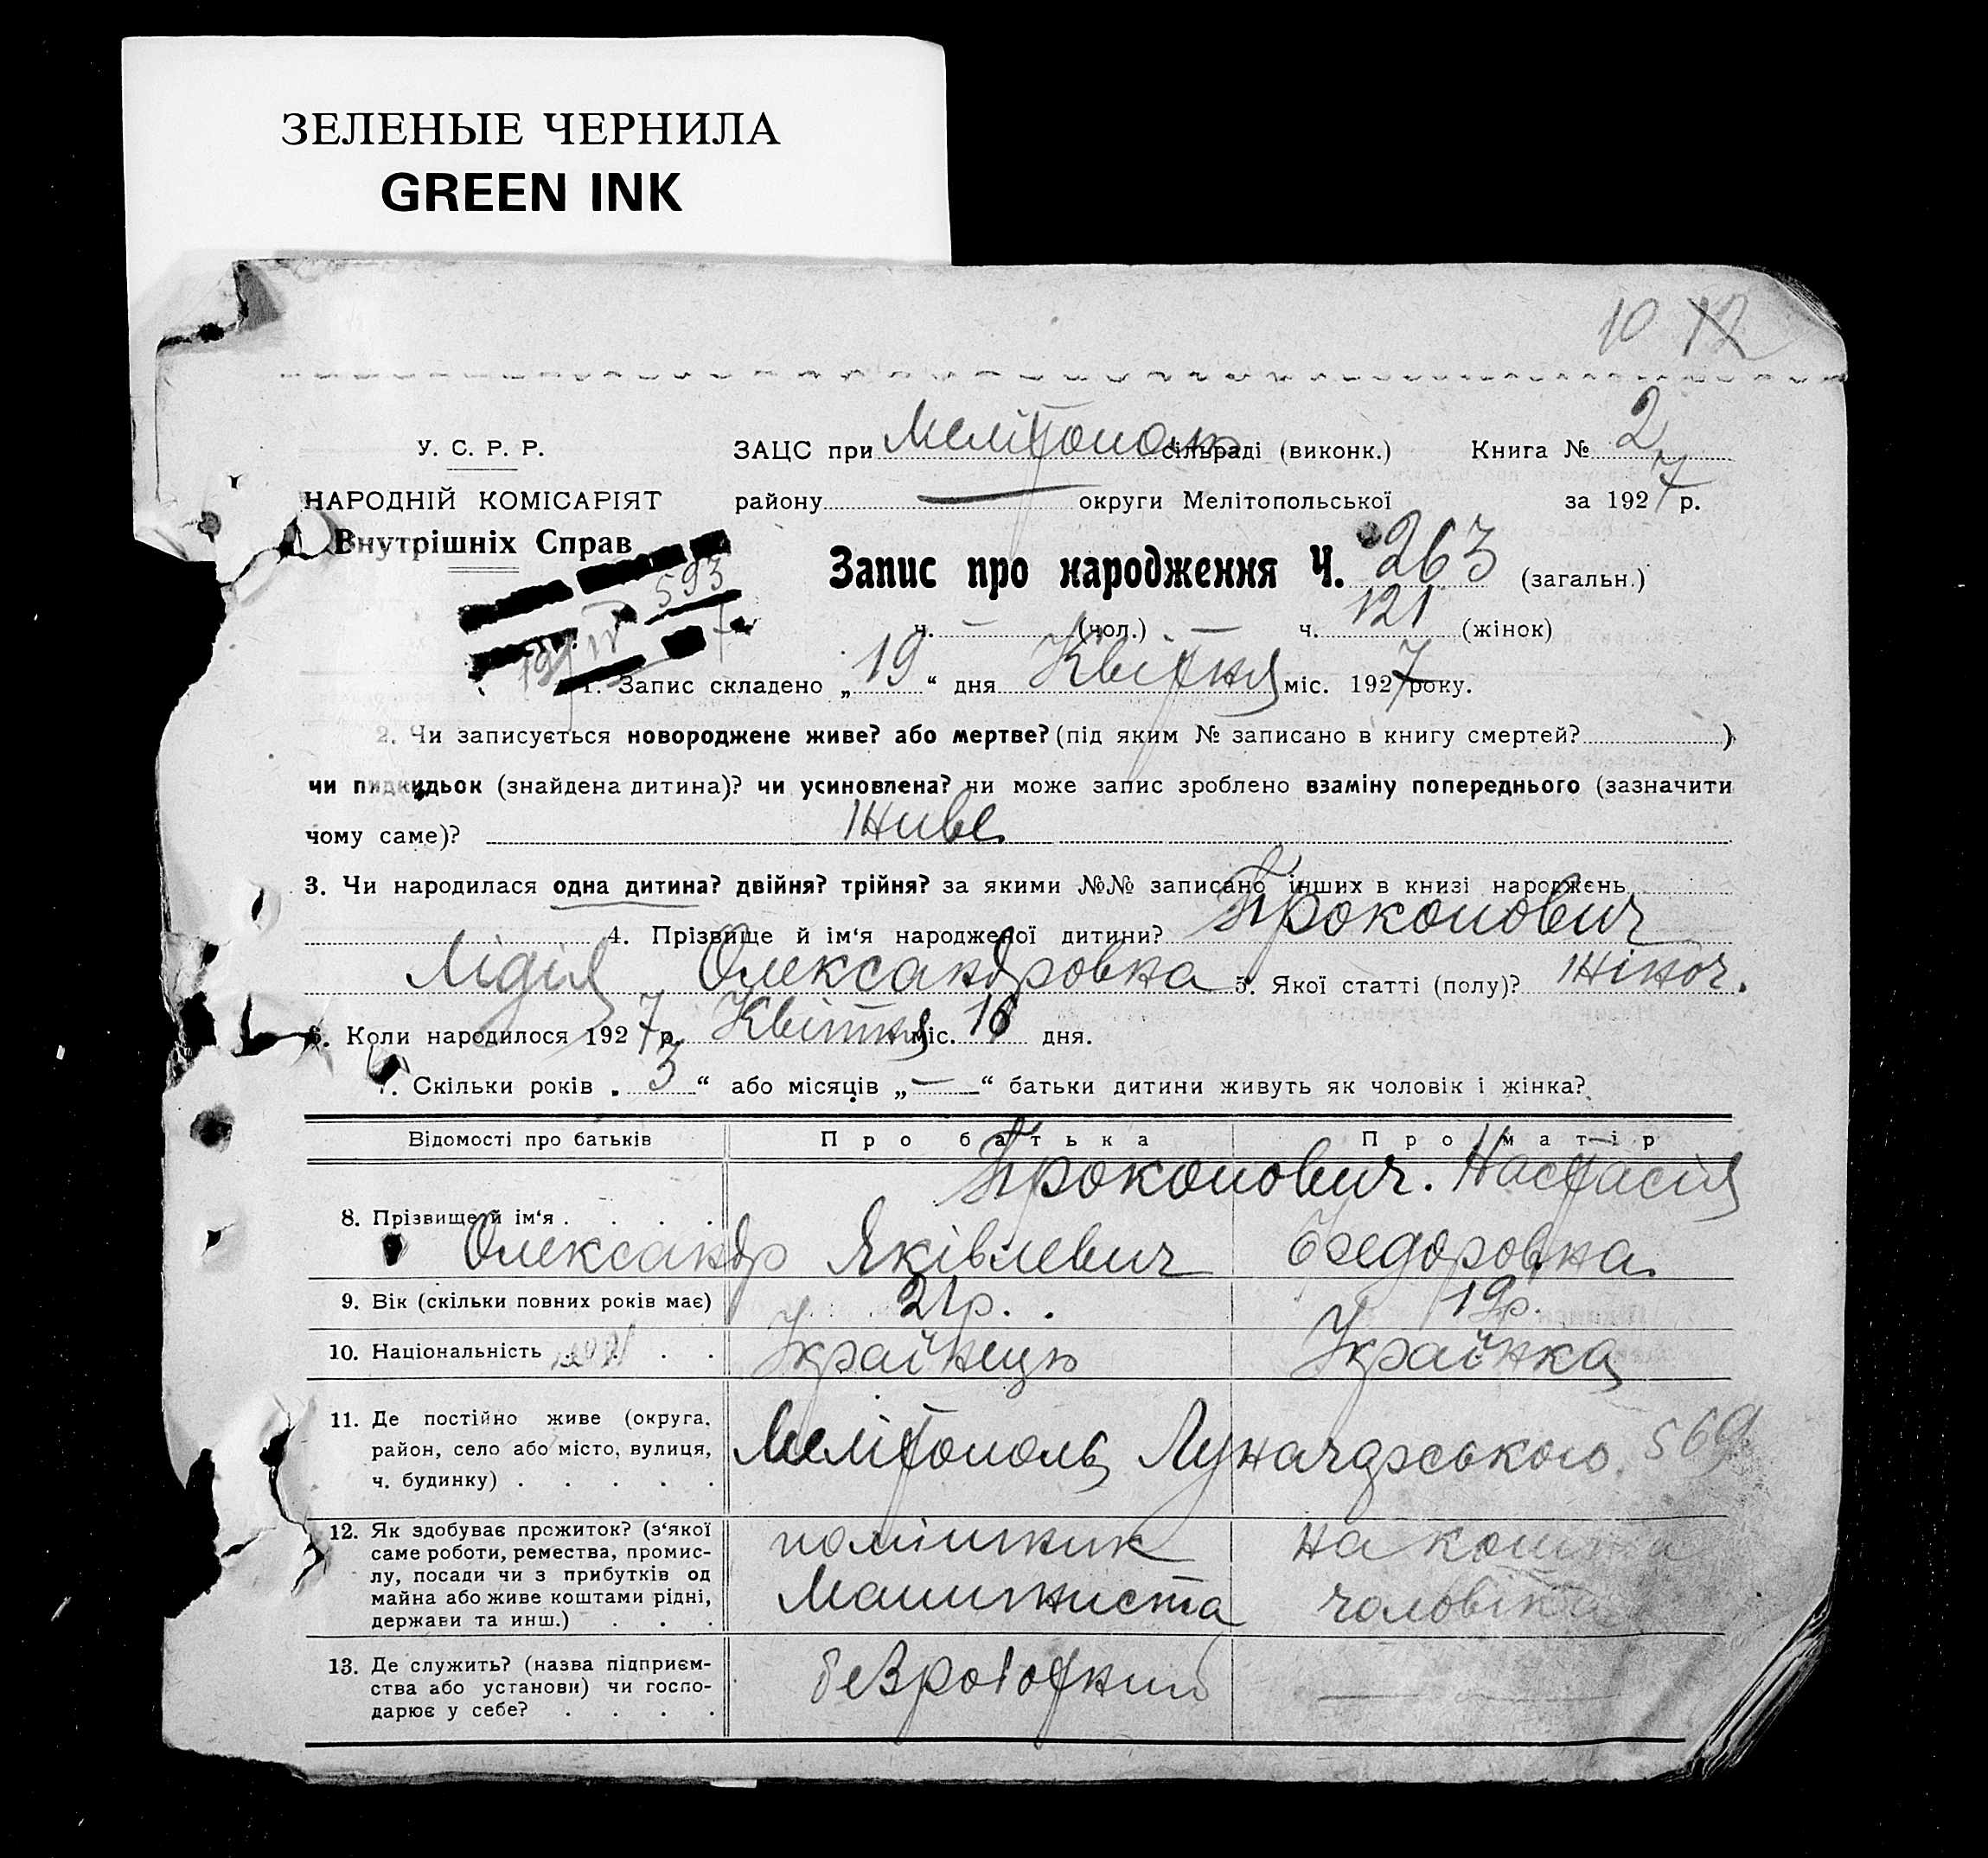 ЗЕЛЕНЫЕ ЧЕРНИЛА
GREEN INK
10 12
У. С. Р. Р.
НАРОДНІЙ КОМІСАРІЯТ
Внутрішніх Справ
593
ЗАЦС при Мелітополь сільраді (виконк.) Книга № 2
району — округи Мелітопольської за 1927 р.
Запис про народження Ч. 263 (загальн.)
ч. — (чол.) — ч. 121 (жінок)
19/IV
1. Запис складено „ 19 “ дня Квітня міс. 1927 року.
2. Чи записується новороджене живе? або мертве? (під яким № записано в книгу смертей? )
чи пидкидьок (знайдена дитина)? чи усиновлена? чи може запис зроблено взаміну попереднього (зазначити
чому саме)? Живе
3. Чи народилася одна дитина? двійня? трійня? за якими №№ записано інших в книзі народжень
4. Прізвище й ім‘я народженої дитини? Прокопович
Лідія Олександровна 5. Якої статті (полу)? жіноч.
6. Коли народилося 1927 р. Квітня міс. 16 дня.
7. Скільки років „ 3 “ або місяців „ — “ батьки дитини живуть як чоловік і жінка?
Відомості про батьків Про батька Про матір
8. Прізвище й ім‘я . . . . Прокопович. Настасія
Олександр Яківлевич Федоровна
9. Вік (скільки повних років має) 21 р. 19 р.
10. Національність . . . . Українець Українка
11. Де постійно живе (округа,
район, село або місто, вулиця,
ч. будинку) . . . . .
Мелітополь Луначарського 569
12. Як здобуває прожиток? (з‘якої
саме роботи, ремества, промис-
лу, посади чи з прибутків од
майна або живе коштами рідні,
держави та инш.) . . .
помішник на кошти
Машиниста чоловіка
13. Де служить? (назва підприєм-
ства або установи) чи госпо-
дарює у себе? . . . .
безроботний —